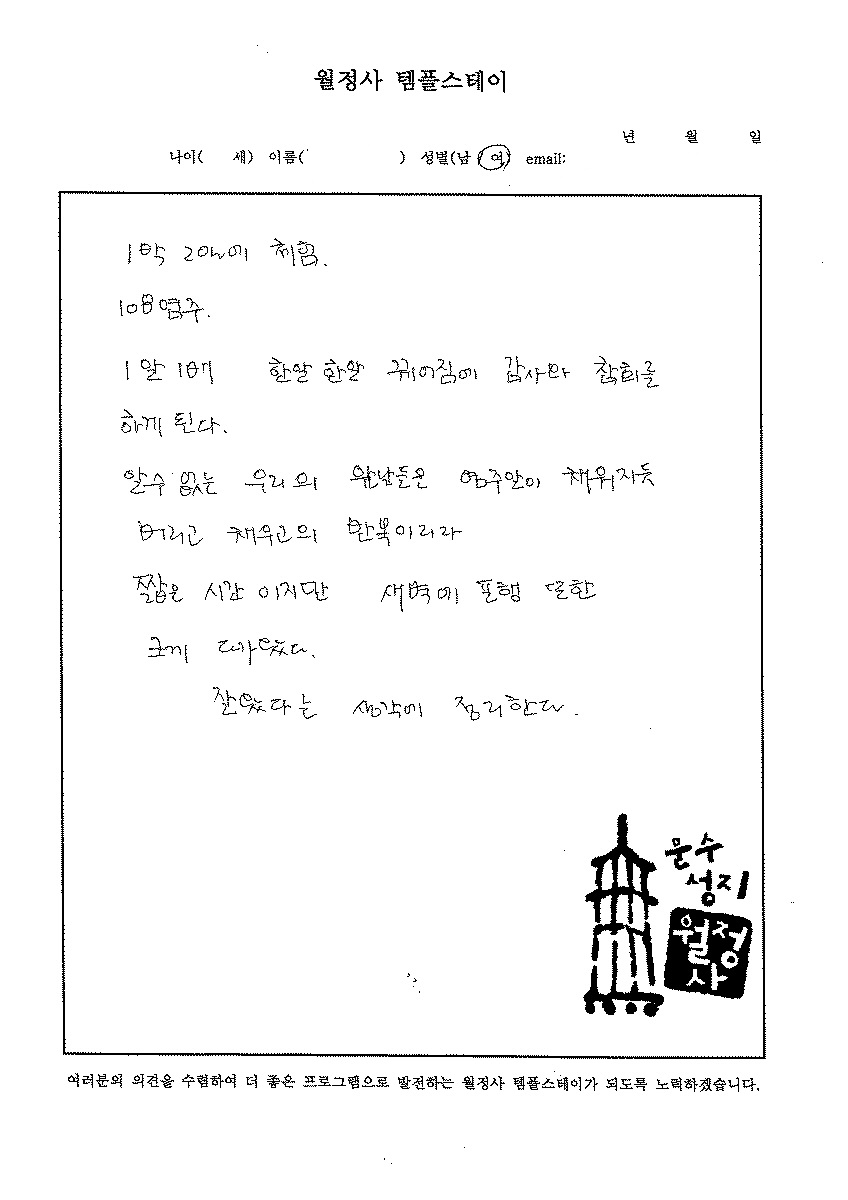 월정사 템플스테이
년 월 일
나이( 세) 이름( ) 성별(남 여) email:
1박 2일에 체험.
108염주.
1알 1배 한알 한알 꿰어짐에 감사와 참회를
하게 된다.
알수 없는 우리의 만남들은 염주알이 채워지듯
버리고 채우고의 반복이리라
짧은 시간 이지만 새벽에 포행 또한
크게 다가왔다.
잘왔다는 생각에 정리한다.
문수
성지
월정
사
여러분의 의견을 수렴하여 더 좋은 프로그램으로 발전하는 월정사 템플스테이가 되도록 노력하겠습니다.